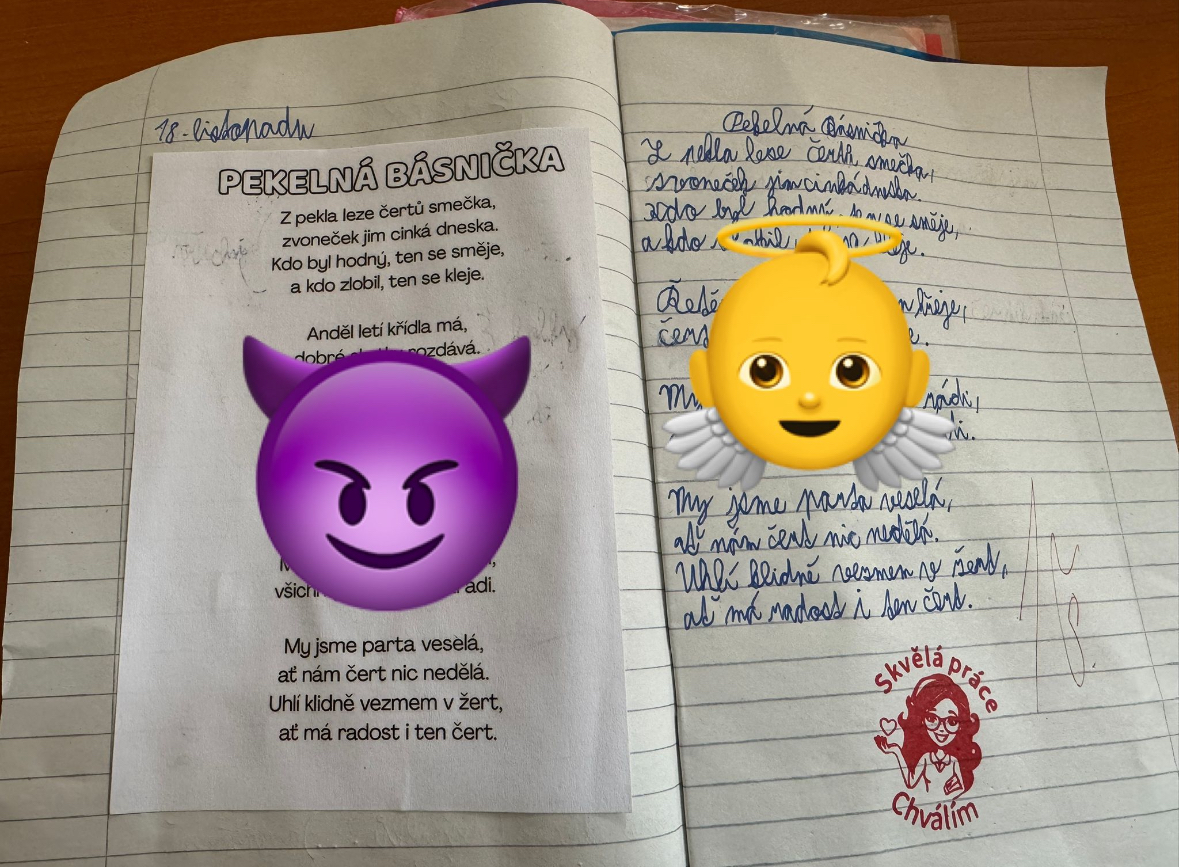 18. listopadu
PEKELNÁ BÁSNIČKA
Z pekla leze čertů smečka,
zvoneček jim cinká dneska.
Kdo byl hodný, ten se směje,
a kdo zlobil, ten se kleje.
Anděl letí křídla má,
dobré rozdává.
adi.
My jsme parta veselá,
ať nám čert nic nedělá.
Uhlí klidně vezmem v žert,
ať má radost i ten čert.
Pekelná básnička
Z pekla leze čertů smečka,
zvoneček jim cinká dneska.
Kdo byl hodný, ten se směje,
a kdo
rádi,
My jsme parta veselá,
ať nám čert nic nedělá.
Uhlí klidně vezmem v žert,
ať má radost i ten čert.
Skvělá práce
Chválím